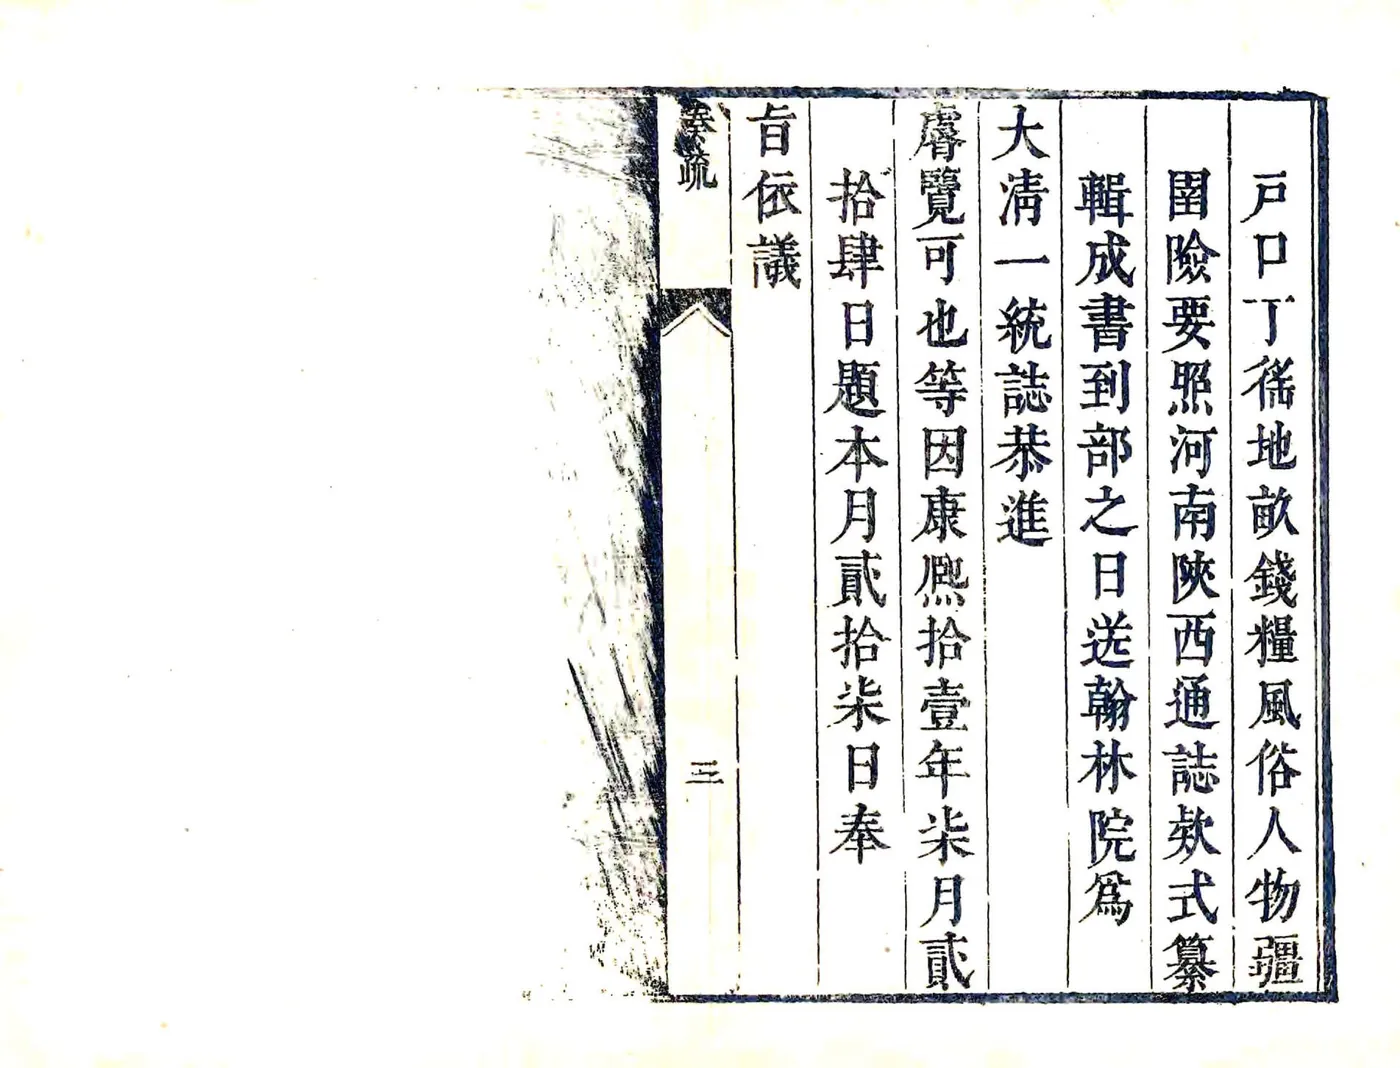 戸口丁徭地畝錢糧風俗人物疆
圉險要照河南陝西通誌欵式纂
輯成書到部之日送翰林院爲
大清一統誌恭進
睿覽可也等因康熈拾壹年柒月貳
拾肆日題本月貳拾柒日奉
旨依議
奏疏
三